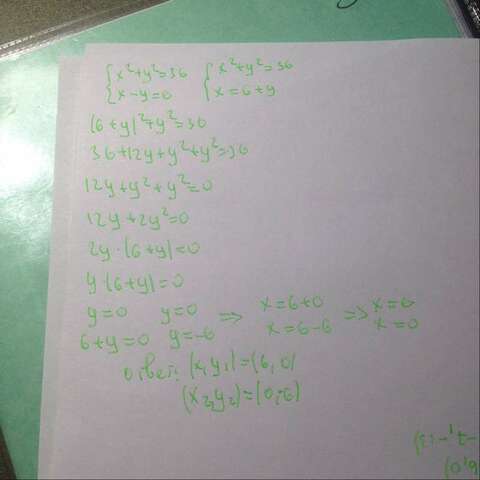 {x²+y²=36 {x²+y²=36
{x-y=6 {x=6+y
(6+y)²+y²=36
36+12y+y²+y²=36
12y+y²+y²=0
12y+2y²=0
2y·(6+y)=0
y·(6+y)=0
y=0 y=0 => x=6+0 => x=6
6+y=0 y=-6 x=6-6 x=0
ответ: (x,y₁)=(6,0)
(x₂,y₂)=(0,-6)